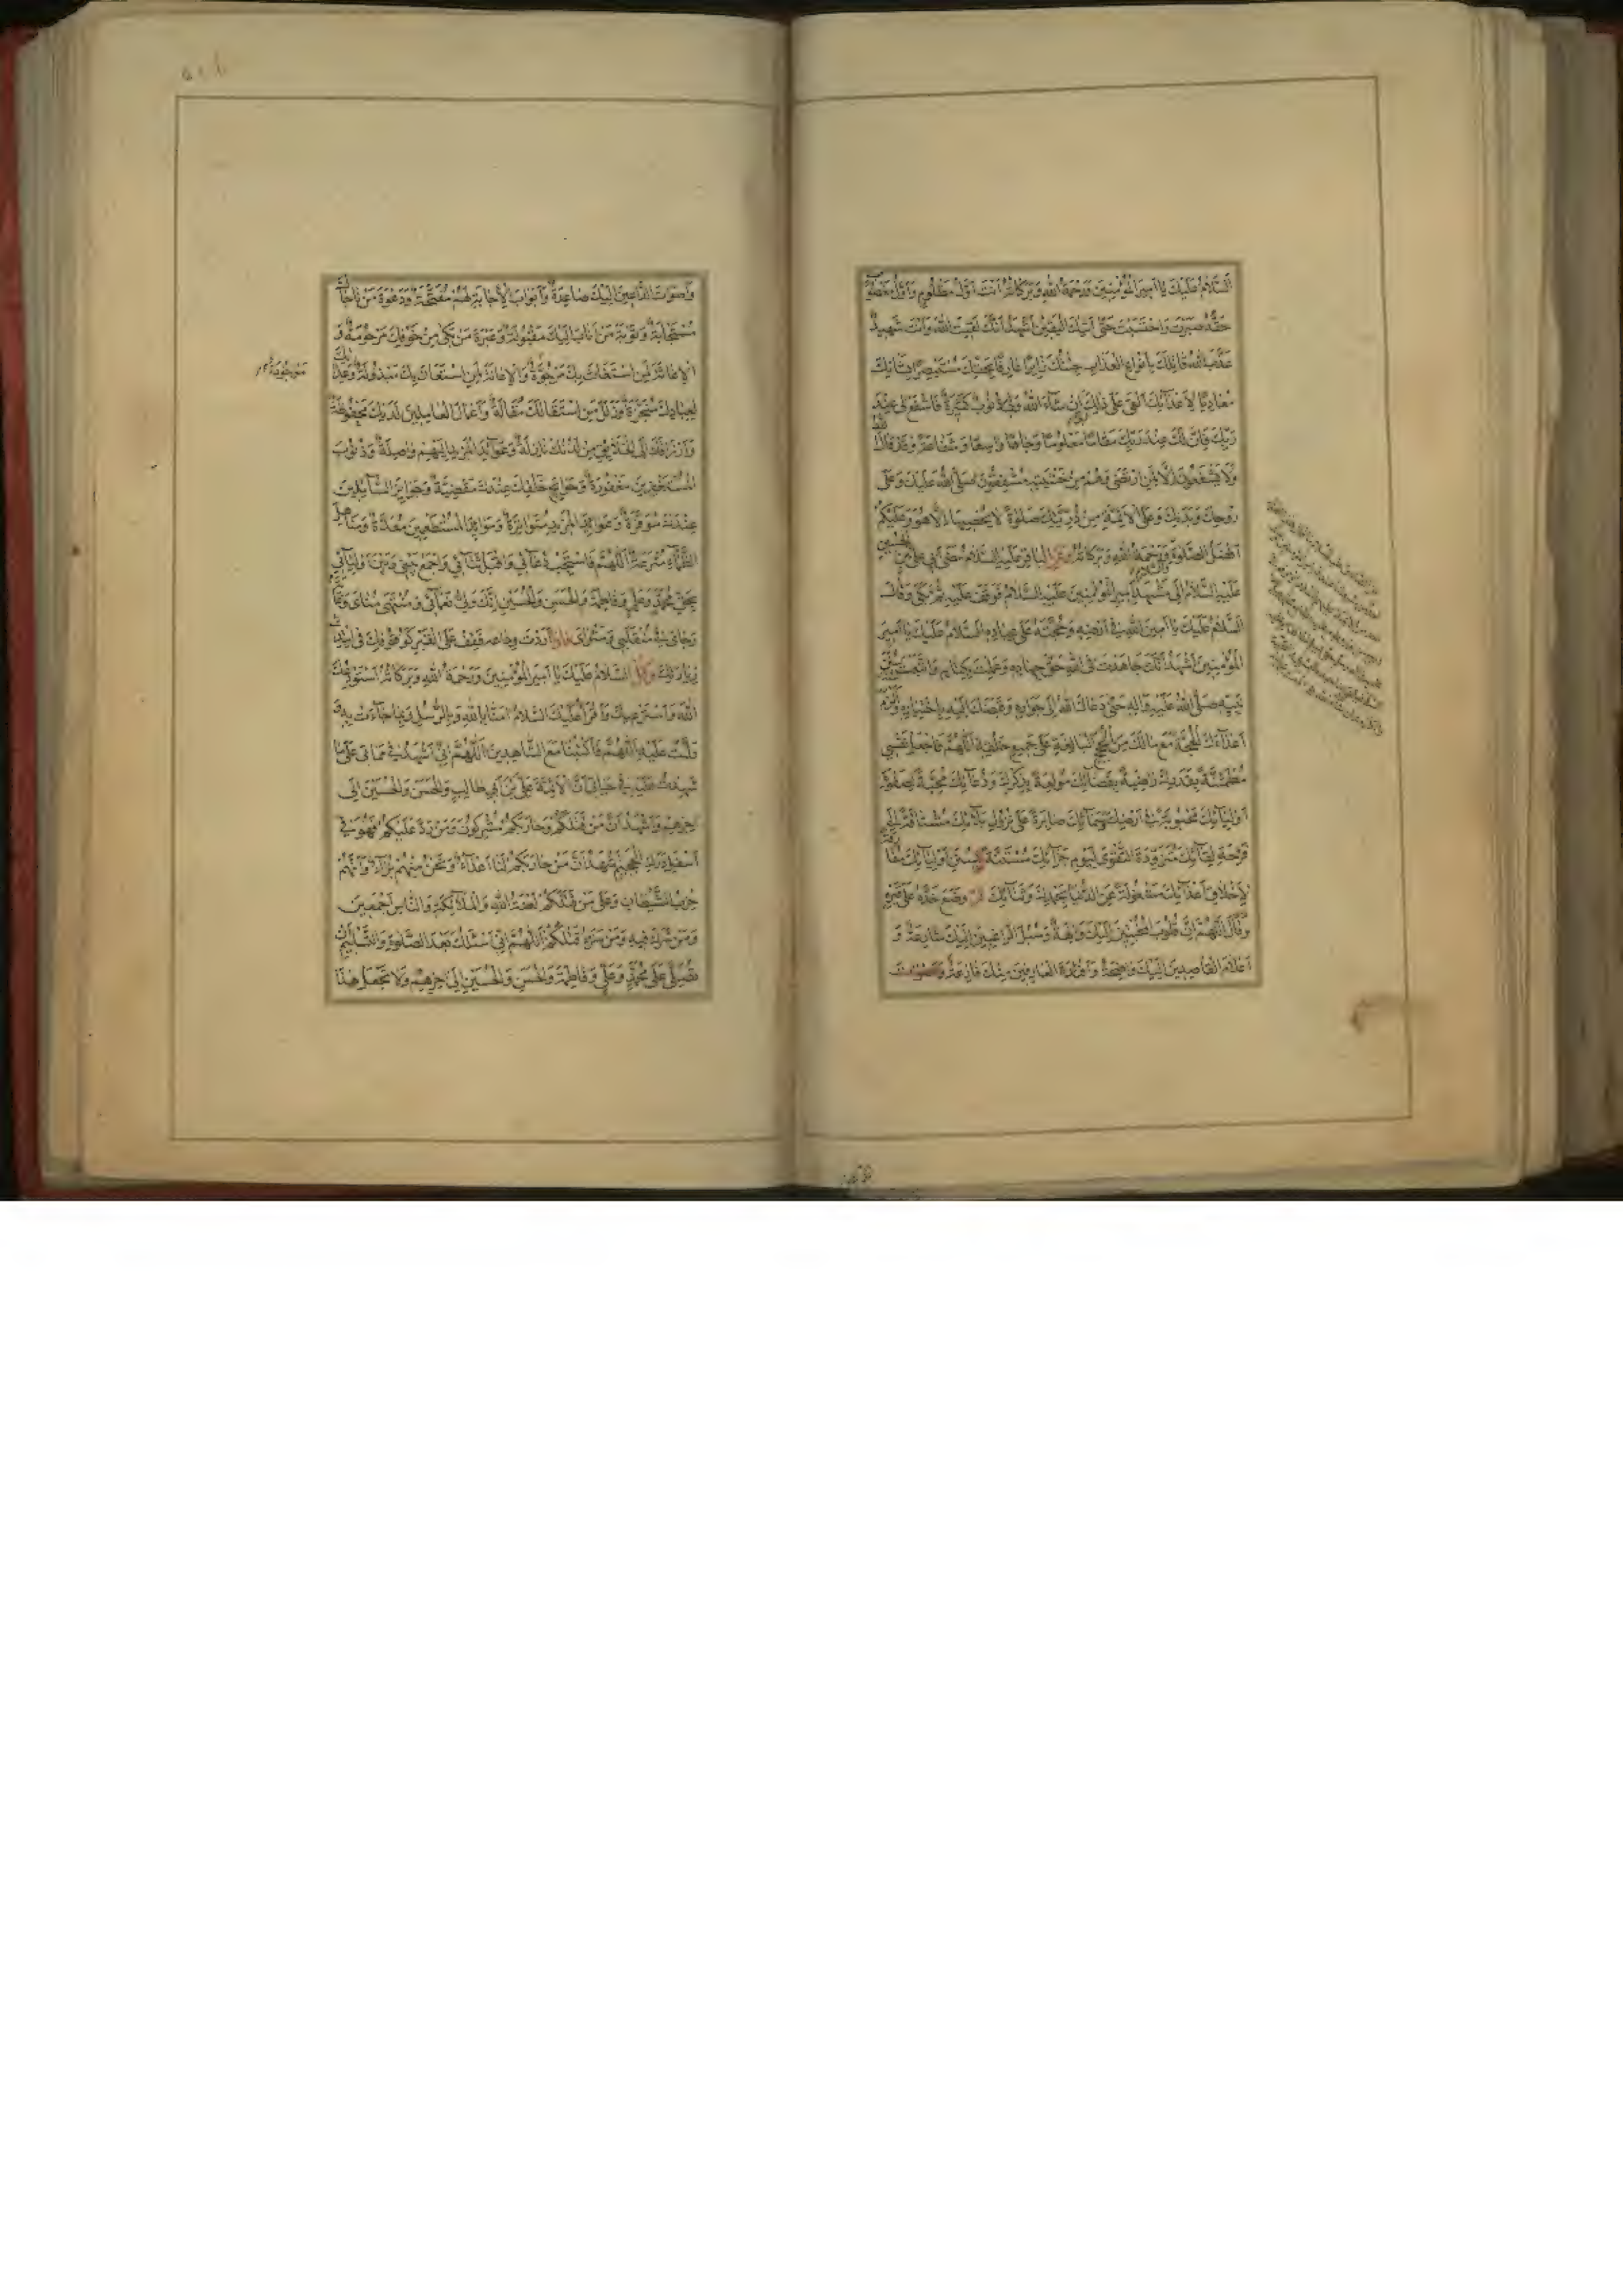 السَّلامُ عَلَيْكَ يا اَميرَ الْمُؤْمِنينَ وَرَحْمَةُ اللهِ وَبَرَكاتُهُ اَنْتَ اَوَّلُ مَظْلُومٍ وَاَوَّلُ مَنْ غُصِبَ
حَقُّهُ صَبَرْتَ وَاحْتَسَبْتَ حَتّى اَتيكَ الْيَقينُ اَشْهَدُ اَنَّكَ لَقيتَ اللهَ وَاَنْتَ شَهيدٌ
عَذَّبَ اللهُ قاتِلَكَ بِاَنْواعِ الْعَذابِ جِئْتُكَ زائِرًا عارِفًا بِحَقِّكَ مُسْتَبْصِرًا بِشَاْنِكَ
مُعادِيًا لِاَعْدائِكَ اَلْقى عَلى ذلِكَ اِنْ شاءَ اللهُ وَلى ذُنُوبٌ كَثيرَةٌ فَاشْفَعْ لى عِنْدَ
رَبِّكَ فَاِنَّ لَكَ عِنْدَ رَبِّكَ مَقامًا مَعْلُومًا وَجاهًا واسِعًا وَشَفاعَةً وَقَدْ قالَ اللهُ
وَلا يَشْفَعُونَ اِلّا لِمَنِ ارْتَضى وَهُمْ مِنْ خَشْيَتِهِ مُشْفِقُونَ صَلَّى اللهُ عَلَيْكَ وَعَلى
رُوحِكَ وَبَدَنِكَ وَعَلَى الْاَئِمَّةِ مِنْ ذُرِّيَّتِكَ صَلوةً لا يُحْصيها اِلّا هُوَ وَعَلَيْكُمْ
اَفْضَلُ الصَّلوةِ وَالسَّلامِ وَرَحْمَةُ اللهِ وَبَرَكاتُهُ الباقر عَلَيْهِ السَّلامُ مَضى اَبى عَلِىُّ بْنُ الْحُسَيْنِ
عَلَيْهِ السَّلامُ اِلى مَشْهَدِ اَميرِ الْمُؤْمِنينَ عَلَيْهِ السَّلامُ فَوَقَفَ عَلَيْهِ ثُمَّ بَكى وَقالَ
السَّلامُ عَلَيْكَ يا اَمينَ اللهِ فى اَرْضِهِ وَحُجَّتَهُ عَلى عِبادِهِ السَّلامُ عَلَيْكَ يا اَميرَ
الْمُؤْمِنينَ اَشْهَدُ اَنَّكَ جاهَدْتَ فِى اللهِ حَقَّ جِهادِهِ وَعَمِلْتَ بِكِتابِهِ وَاتَّبَعْتَ سُنَنَ
نَبِيِّهِ صَلَّى اللهُ عَلَيْهِ وَآلِهِ حَتّى دَعاكَ اللهُ اِلى جِوارِهِ وَقَبَضَكَ اِلَيْهِ بِاخْتِيارِهِ وَاَلْزَمَ
اَعْداءَكَ الْحُجَّةَ مَعَ مالَكَ مِنَ الْحُجَجِ الْبالِغَةِ عَلى جَميعِ خَلْقِهِ اَللّهُمَّ فَاجْعَلْ نَفْسى
مُطْمَئِنَّةً بِقَدَرِكَ راضِيَةً بِقَضائِكَ مُولِعَةً بِذِكْرِكَ وَدُعائِكَ مُحِبَّةً لِصَفْوَةِ
اَوْلِيائِكَ مَحْبُوبَةً فى اَرْضِكَ وَسَمائِكَ صابِرَةً عَلى نُزُولِ بَلائِكَ مُشْتاقَةً اِلى
فَرْحَةِ لِقائِكَ مُتَزَوِّدَةً التَّقْوى لِيَوْمِ جَزائِكَ مُسْتَنَّةً بِسُنَنِ اَوْلِيائِكَ مُفارِقَةً
لِاَخْلاقِ اَعْدائِكَ مَشْغُولَةً عَنِ الدُّنْيا بِحَمْدِكَ وَثَنائِكَ ثمّ وضع خدّه على قبره
وَقالَ اَللّهُمَّ اِنَّ قُلُوبَ الْمُخْبِتينَ اِلَيْكَ والِهَةٌ وَسُبُلَ الرّاغِبينَ اِلَيْكَ شارِعَةٌ وَ
اَعْلامَ الْقاصِدينَ اِلَيْكَ واضِحَةٌ وَاَفْئِدَةَ الْعارِفينَ مِنْكَ فازِعَةٌ
وَاَصْواتَ الدّاعينَ اِلَيْكَ صاعِدَةٌ وَاَبْوابَ الْاِجابَةِ لَهُمْ مُفَتَّحَةٌ وَدَعْوَةَ مَنْ ناجاكَ
مُسْتَجابَةٌ وَتَوْبَةَ مَنْ اَنابَ اِلَيْكَ مَقْبُولَةٌ وَعَبْرَةَ مَنْ بَكى مِنْ خَوْفِكَ مَرْحُومَةٌ وَ
الْاِغاثَةَ لِمَنِ اسْتَغاثَ بِكَ مَرْجُوَّةٌ وَالْاِعانَةَ لِمَنِ اسْتَعانَ بِكَ مَبْذُولَةٌ وَعِداتِكَ
مَوْجُودَةٌ
لِعِبادِكَ مُنْجَزَةٌ وَزَلَلَ مَنِ اسْتَقالَكَ مُقالَةٌ وَاَعْمالَ الْعامِلينَ لَدَيْكَ مَحْفُوظَةٌ
وَاَرْزاقَكَ اِلَى الْخَلائِقِ مِنْ لَدُنْكَ نازِلَةٌ وَعَوائِدَ الْمَزيدِ اِلَيْهِمْ واصِلَةٌ وَذُنُوبَ
الْمُسْتَغْفِرينَ مَغْفُورَةٌ وَحَوائِجَ خَلْقِكَ عِنْدَكَ مَقْضِيَّةٌ وَجَوائِزَ السّائِلينَ
عِنْدَكَ مُوَفَّرَةٌ وَعَوائِدَ الْمَزيدِ مُتَواتِرَةٌ وَمَوائِدَ الْمُسْتَطْعِمينَ مُعَدَّةٌ وَمَناهِلَ
الظِّماءِ مُتْرَعَةٌ اَللّهُمَّ فَاسْتَجِبْ دُعائى وَاقْبَلْ ثَنائى وَاجْمَعْ بَيْنى وَبَيْنَ اَوْلِيائى
بِحَقِّ مُحَمَّدٍ وَعَلِىٍّ وَفاطِمَةَ وَالْحَسَنِ وَالْحُسَيْنِ اِنَّكَ وَلِىُّ نَعْمائى وَمُنْتَهى مُناىَ وَغايَةُ
رَجائى فى مُنْقَلَبى وَمَثْواىَ فاذا اَرَدْتَ وِداعه فَقِفْ عَلَى الْقَبْرِ كَوُقُوفِكَ فى ابْتِداءِ
زِيارَتِكَ وَقُلْ السَّلامُ عَلَيْكَ يا اَميرَ الْمُؤْمِنينَ وَرَحْمَةُ اللهِ وَبَرَكاتُهُ اَسْتَوْدِعُكَ
اللهَ وَاَسْتَرْعيكَ وَاَقْرَاُ عَلَيْكَ السَّلامَ امَنّا بِاللهِ وَبِالرُّسُلِ وَبِما جاءَتْ بِهِ وَ
دَلَّتْ عَلَيْهِ اَللّهُمَّ فَاكْتُبْنا مَعَ الشّاهِدينَ اَللّهُمَّ اِنّى اَشْهَدُ فى مَماتى عَلى ما
شَهِدْتُ عَلَيْهِ فى حَياتى اَنَّ الْاَئِمَّةَ عَلِىُّ بْنُ اَبى طالِبٍ وَالْحَسَنُ وَالْحُسَيْنُ اِلى
اخِرِهِمْ وَاَشْهَدُ اَنَّ مَنْ قَتَلَكُمْ وَحارَبَكُمْ مُشْرِكُونَ وَمَنْ رَدَّ عَلَيْكُمْ فَهُوَ فى
اَسْفَلِ دَرَكِ الْجَحيمِ وَنَشْهَدُ اَنَّ مَنْ حارَبَكُمْ لَنا اَعْداءٌ وَنَحْنُ مِنْهُمْ بُرَاءُ وَاَنَّهُمْ
حِزْبُ الشَّيْطانِ وَعَلى مَنْ قَتَلَكُمْ لَعْنَةُ اللهِ وَالْمَلائِكَةِ وَالنّاسِ اَجْمَعينَ
وَمَنْ شَرِكَ فيهِ وَمَنْ سَرَّهُ قَتْلُكُمْ اَللّهُمَّ اِنّى اَسْئَلُكَ بَعْدَ الصَّلوةِ وَالتَّسْليمِ اَنْ
تُصَلِّىَ عَلى مُحَمَّدٍ وَعَلِىٍّ وَفاطِمَةَ وَالْحَسَنِ وَالْحُسَيْنِ اِلى اخِرِهِمْ وَلا تَجْعَلْ هذا